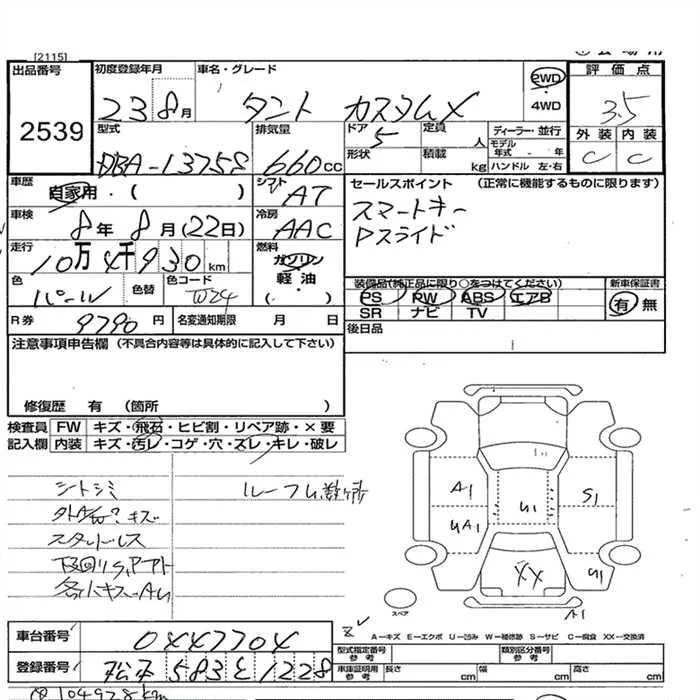 [2115]
出品番号
2539
初度登録年月
23 8月
車名・グレード
タント カスタムX
2WD
・
4WD
評価点
3.5
外装 内装
C C
型式
DBA-L375S
排気量
660cc
ドア
5
形状
定員
人
積載
kg
ディーラー・並行
モデル年式 - 年
ハンドル 左・右
車歴
自家用・( )
シフト
AT
セールスポイント (正常に機能するものに限ります)
スマートキー
Pスライド
車検
8年 8月(22日)
冷房
AAC
走行
10万4千930km
燃料
ガソリン
軽油
( ・ )
色
パール
色替
色コード
W24
装備品(純正品に限り○をつけてください)
PS PW ABS エアB
SR ナビ TV
新車保証書
有 無
R券
9790円
名変通知期限 月 日
後日品
注意事項申告欄(不具合内容等は具体的に記入して下さい)
修復歴 有 (箇所 )
検査員 FW キズ・飛石・ヒビ割・リペア跡・×要
記入欄 内装 キズ・汚レ・コゲ・穴・スレ・キレ・破レ
シートシミ
スタットレス
ルーフム数ヶ所
A1
UA1
U1
S1
XX
U1
A1
スペア
A−キズ E−エクボ U−凹み W−補修跡 S−サビ C−腐食 XX−交換済
車台番号
0447704
登録番号
松本 583 と 1228
型式指定番号
参考
類別区分番号
参考
車庫証明用
参考
長さ cm 幅 cm 高さ cm
104928km